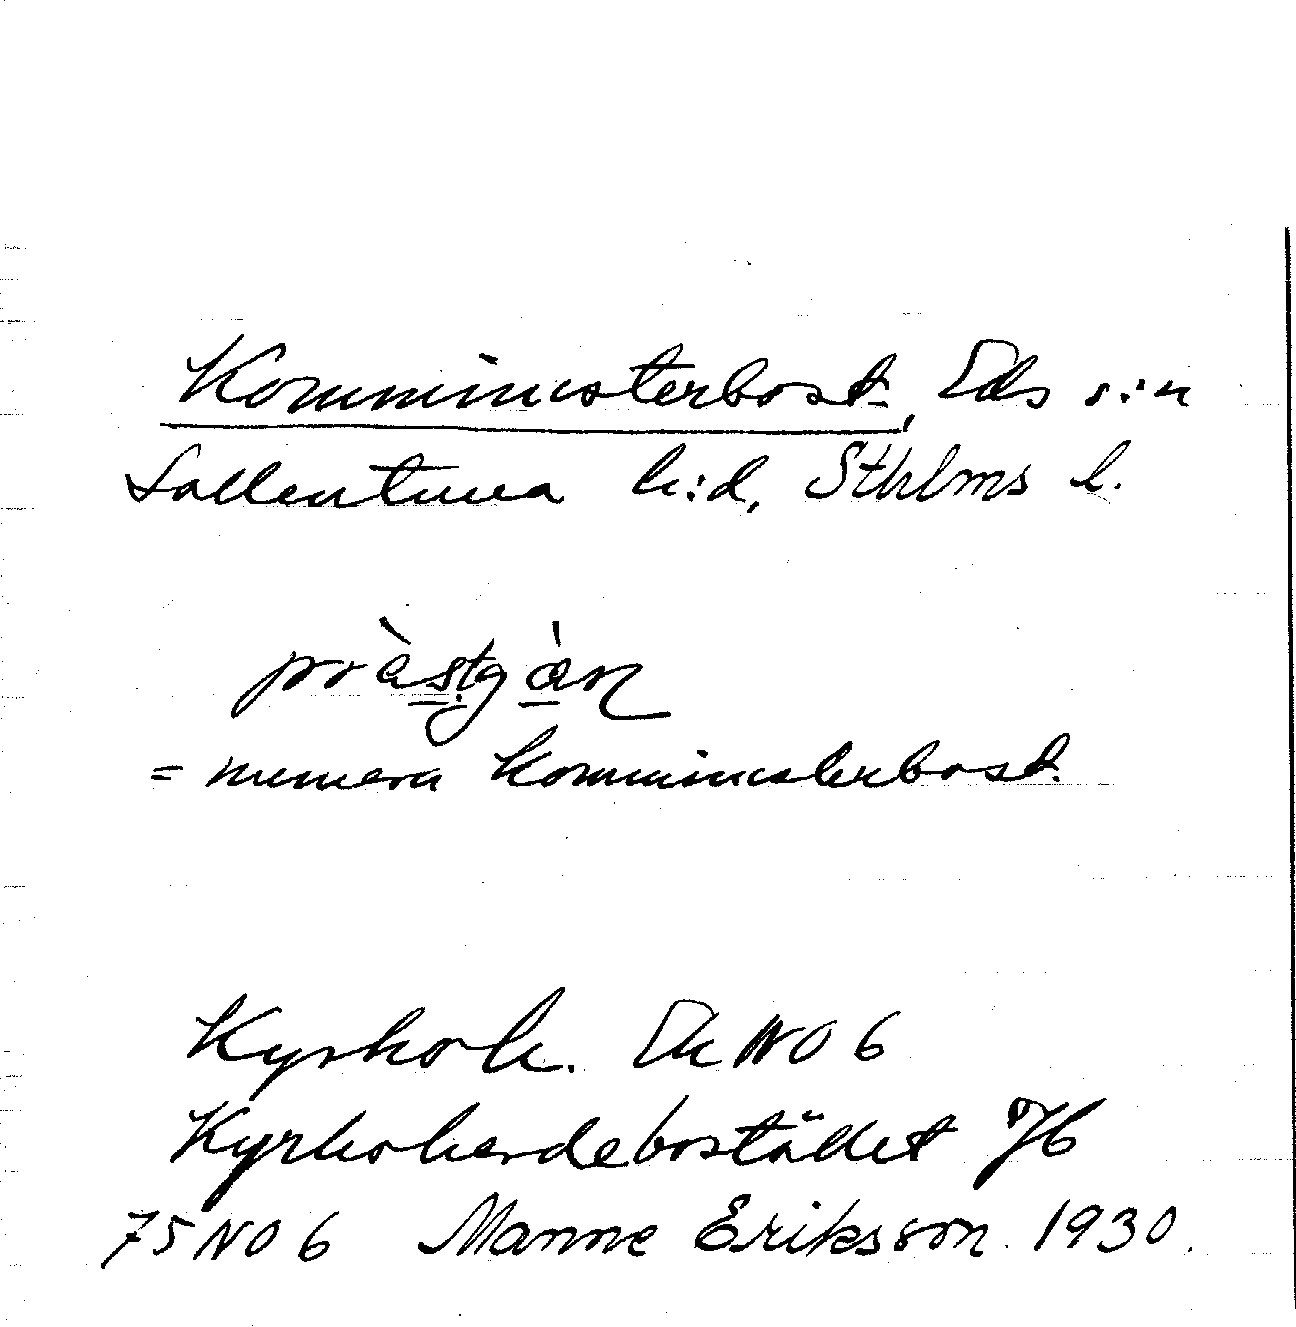 Komministerbost., Eds s:n
Sollentuna h:d, Sthlms l.
pràstgàn
= numera kommunisterbost.
Kyrkoh. Ek NO 6
Kyrkoherdebostället
75 NO 6 Manne Eriksson 1930.